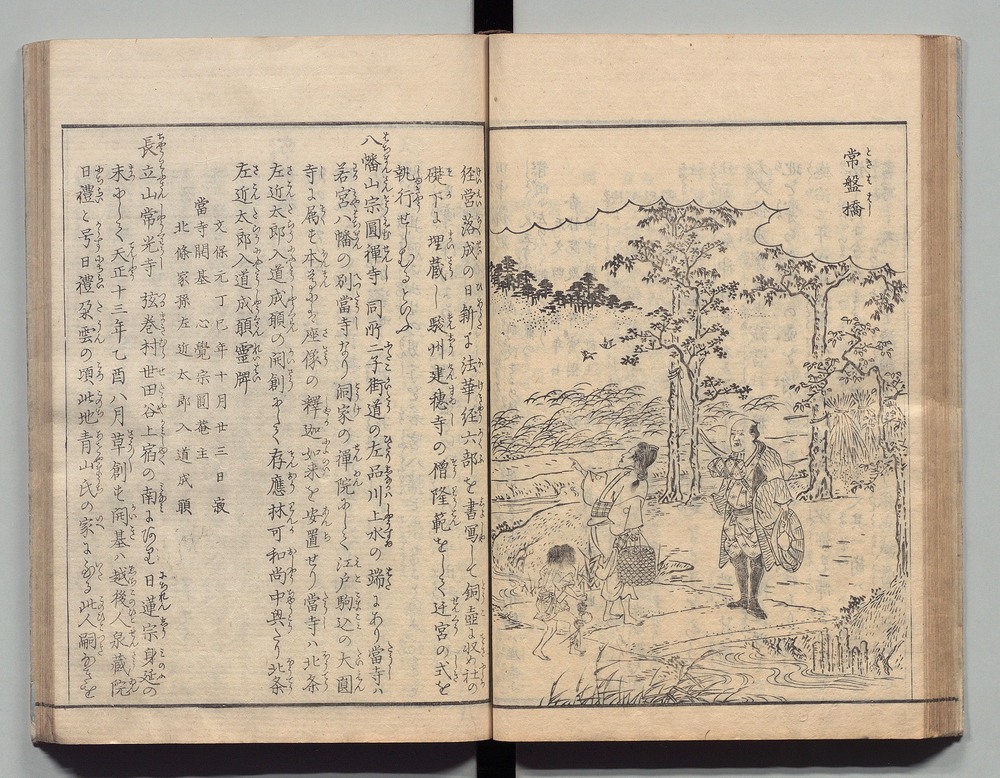 常盤橋
経営落成の日新に法華経六部を書写して銅壺に収め社の
礎下に埋蔵し駿州建穂寺の僧隆範をして迁宮の式を
執行せしむるといふ
八幡山宗圓禅寺 同所二子街道の左品川上水の端にあり當寺ハ
若宮八幡の別當寺なり洞家の禅院にして江戸駒込の大圓
寺に属す本尊ハ座像の釋迦如来を安置せり當寺ハ北条
左近太郎入道成願の開創にして存應林可和尚中興たり北条
左近太郎入道成願霊牌
文保元丁巳年十月廿三日寂
當寺開基 心覺宗圓菴主
北條家孫左近太郎入道成願
長立山常光寺 弦巻村世田谷上宿の南にあり日蓮宗身延の
末にして天正十三年乙酉八月草創す開基ハ越後人泉蔵院
日禮と号日禮の頃此地青山氏の家にある此人嗣なきを